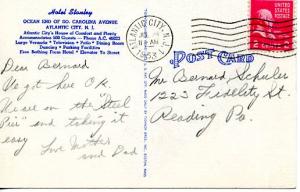 Hotel Stanley
OCEAN END OF SO. CAROLINA AVENUE
ATLANTIC CITY, N. J.
Atlantic City's House of Comfort and Plenty
Accommodates 200 Guests - Phone A.C.
Large Verandas * Television * Patio * Dining Room
Dancing * Parking Facilities
Free Bathing From Hotel * Elevator To Street
ATLANTIC CITY, N.J.
AM
1953
POST CARD
Dear Bernard
We got here O.K.
We are on the "Steel
Pier" and taking it
easy
Love Mother
and Dad
Mr. Bernard Schuler
1223 Fidelity St.
Reading Pa.